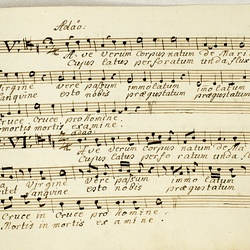 Adão:
A. ve verum Corpus natum de Mari
Cujus latus perforatum unda, flu
Virgine vere passum immolatum im
Sanguine esto nobis prægustatum
Cruce. Cruce pro homine.
mortis mortis examine.
A. ve verum Corpus natum de Ma
Cujus latus perfo ratum unda, flu
Virgine vere passum immo latum
Sanguine esto nobis prægustatum
Cruce in Cruce pro homine.
Mortis in mortis ex amine.